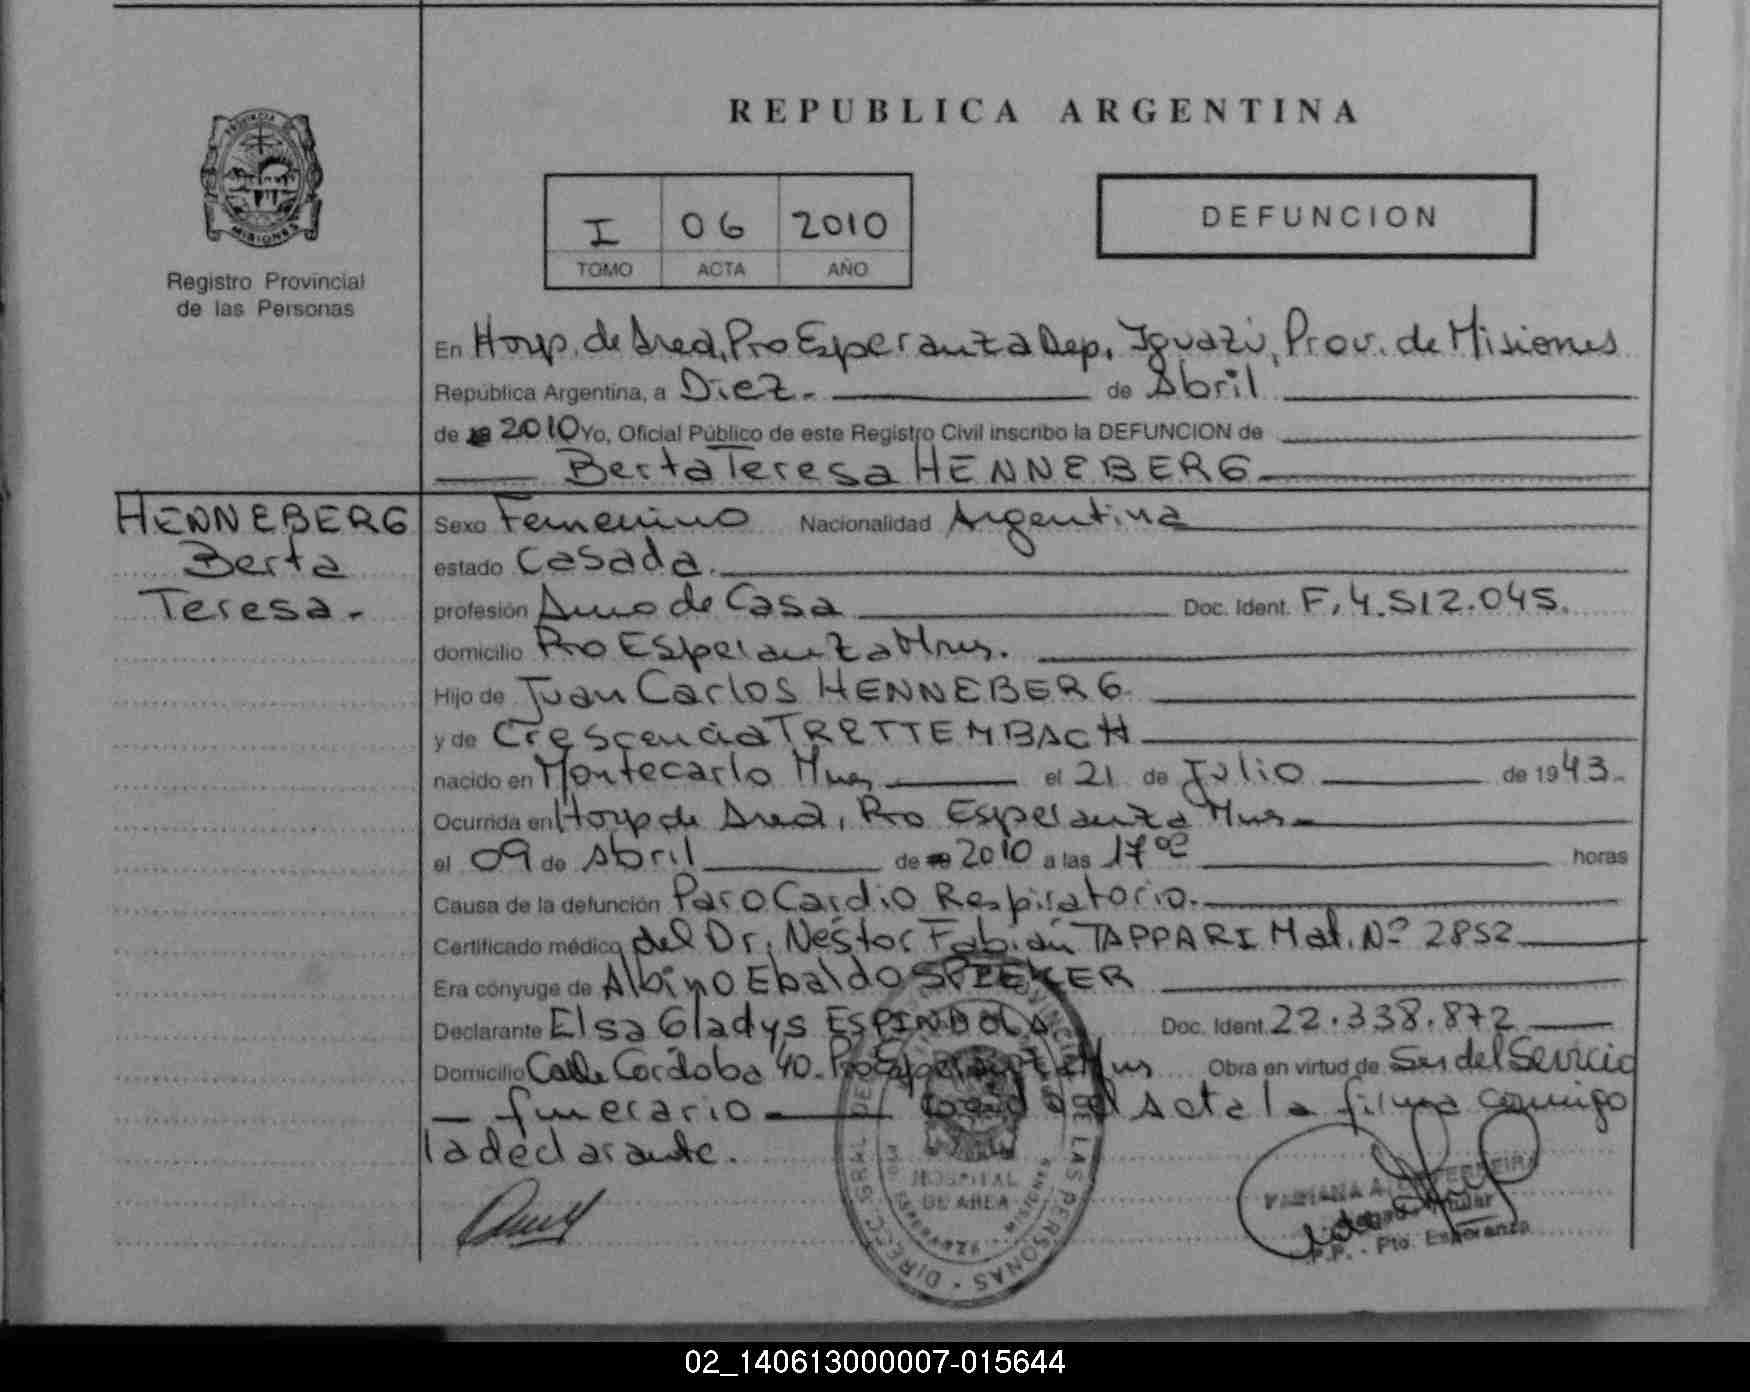 REPUBLICA ARGENTINA
PROVINCIA DE
MISIONES
Registro Provincial
de las Personas
I 06 2010
TOMO ACTA AÑO
DEFUNCION
En Hosp. de Area, Pto Esperanza Dep. Iguazú, Prov. de Misiones
República Argentina, a Diez.- de Abril
de 2010 Yo, Oficial Público de este Registro Civil inscribo la DEFUNCION de
Berta Teresa HENNEBERG
HENNEBERG
Berta
Teresa.-
Sexo Femenino Nacionalidad Argentina
estado Casada.
profesión Amo de Casa Doc. Ident. F. 4.512.045.
domicilio Pto Esperanza Mnes.
Hijo de Juan Carlos HENNEBERG
y de Crescencia TRETTEMBACH
nacido en Montecarlo Mnes el 21 de Julio de 1943.-
Ocurrida en Hosp de Area, Pto Esperanza Mnes-
el 09 de Abril de 2010 a las 17 ºº horas
Causa de la defunción Paro Cardio Respiratorio.-
Certificado médico del Dr. Néstor Fabián TAPPARI Mat. Nº 2852
Era cónyuge de Albino Ebaldo SPEEKER
Declarante Elsa Gladys ESPINDOLA Doc. Ident. 22.338.872
Domicilio Calle Córdoba 40. Pto Esperanza Mnes Obra en virtud de Ser del Servicio
funerario el Acta la firma conmigo
la declarante.
DIRECC. GRAL. DEL DE LAS PERSONAS
HOSPITAL
DE AREA
MARIANA A. FERREIRA
Titular
R.P.P. - Pto. Esperanza
02_140613000007-015644